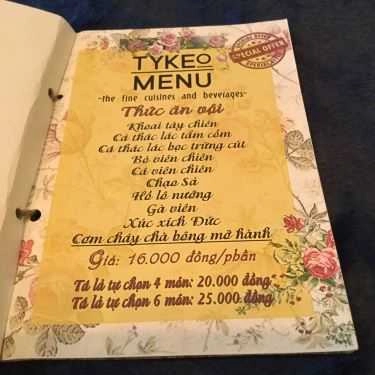 TYKEO
MENU
SPECIAL OFFER
~the fine cuisines and beverages~
Thức ăn vội
Khoai tây chiên
Cá thác lác tẩm cốm
Cá thác lác bọc trứng cút
Bò viên chiên
Cá viên chiên
Chạo Sả
Hồ lô nướng
Gà viên
Xúc xích Đức
Cơm cháy chà bông mỡ hành
Giá: 16.000 đồng/phần
Tá lả tự chọn 4 món: 20.000 đồng
Tá lả tự chọn 6 món: 25.000 đồng